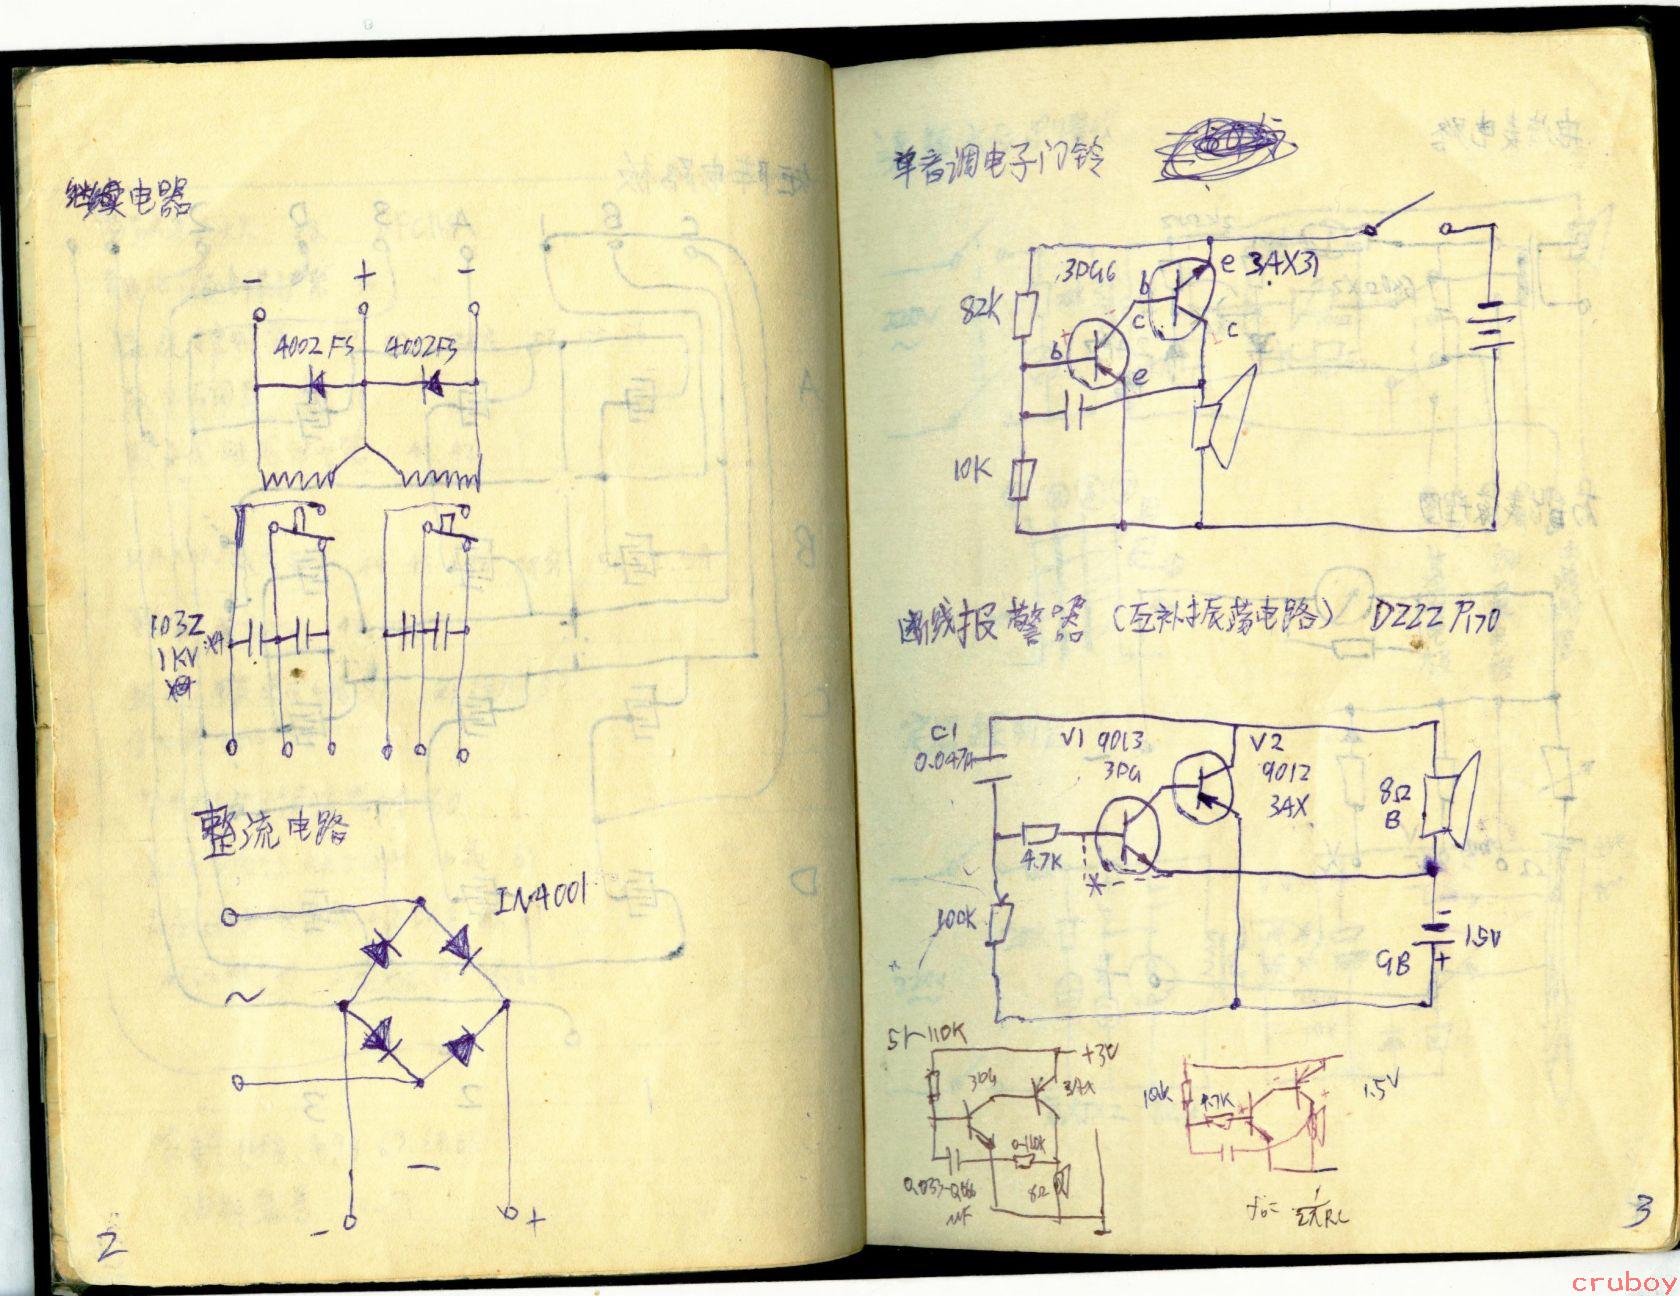 继续电器
- + -
4002FS 4002FS
103Z
1KV
整流电路
IN4001
~
-
- +
2
单音调电子门铃
3DG6 e 3AX31
82K b
c c
b
e
10K
断线报警器(互补振荡电路) DZZZ P170
C1 V1 9013 V2
0.047μ 3DG 9012
3AX
8Ω
B
4.7K
*
100K
1.5V
GB +
51~110K
+3V
3DG 3AX
8Ω
0.033-0.066
μF
10K 4.7K 1.5V
f₀= 1/2πRC
3
cruboy